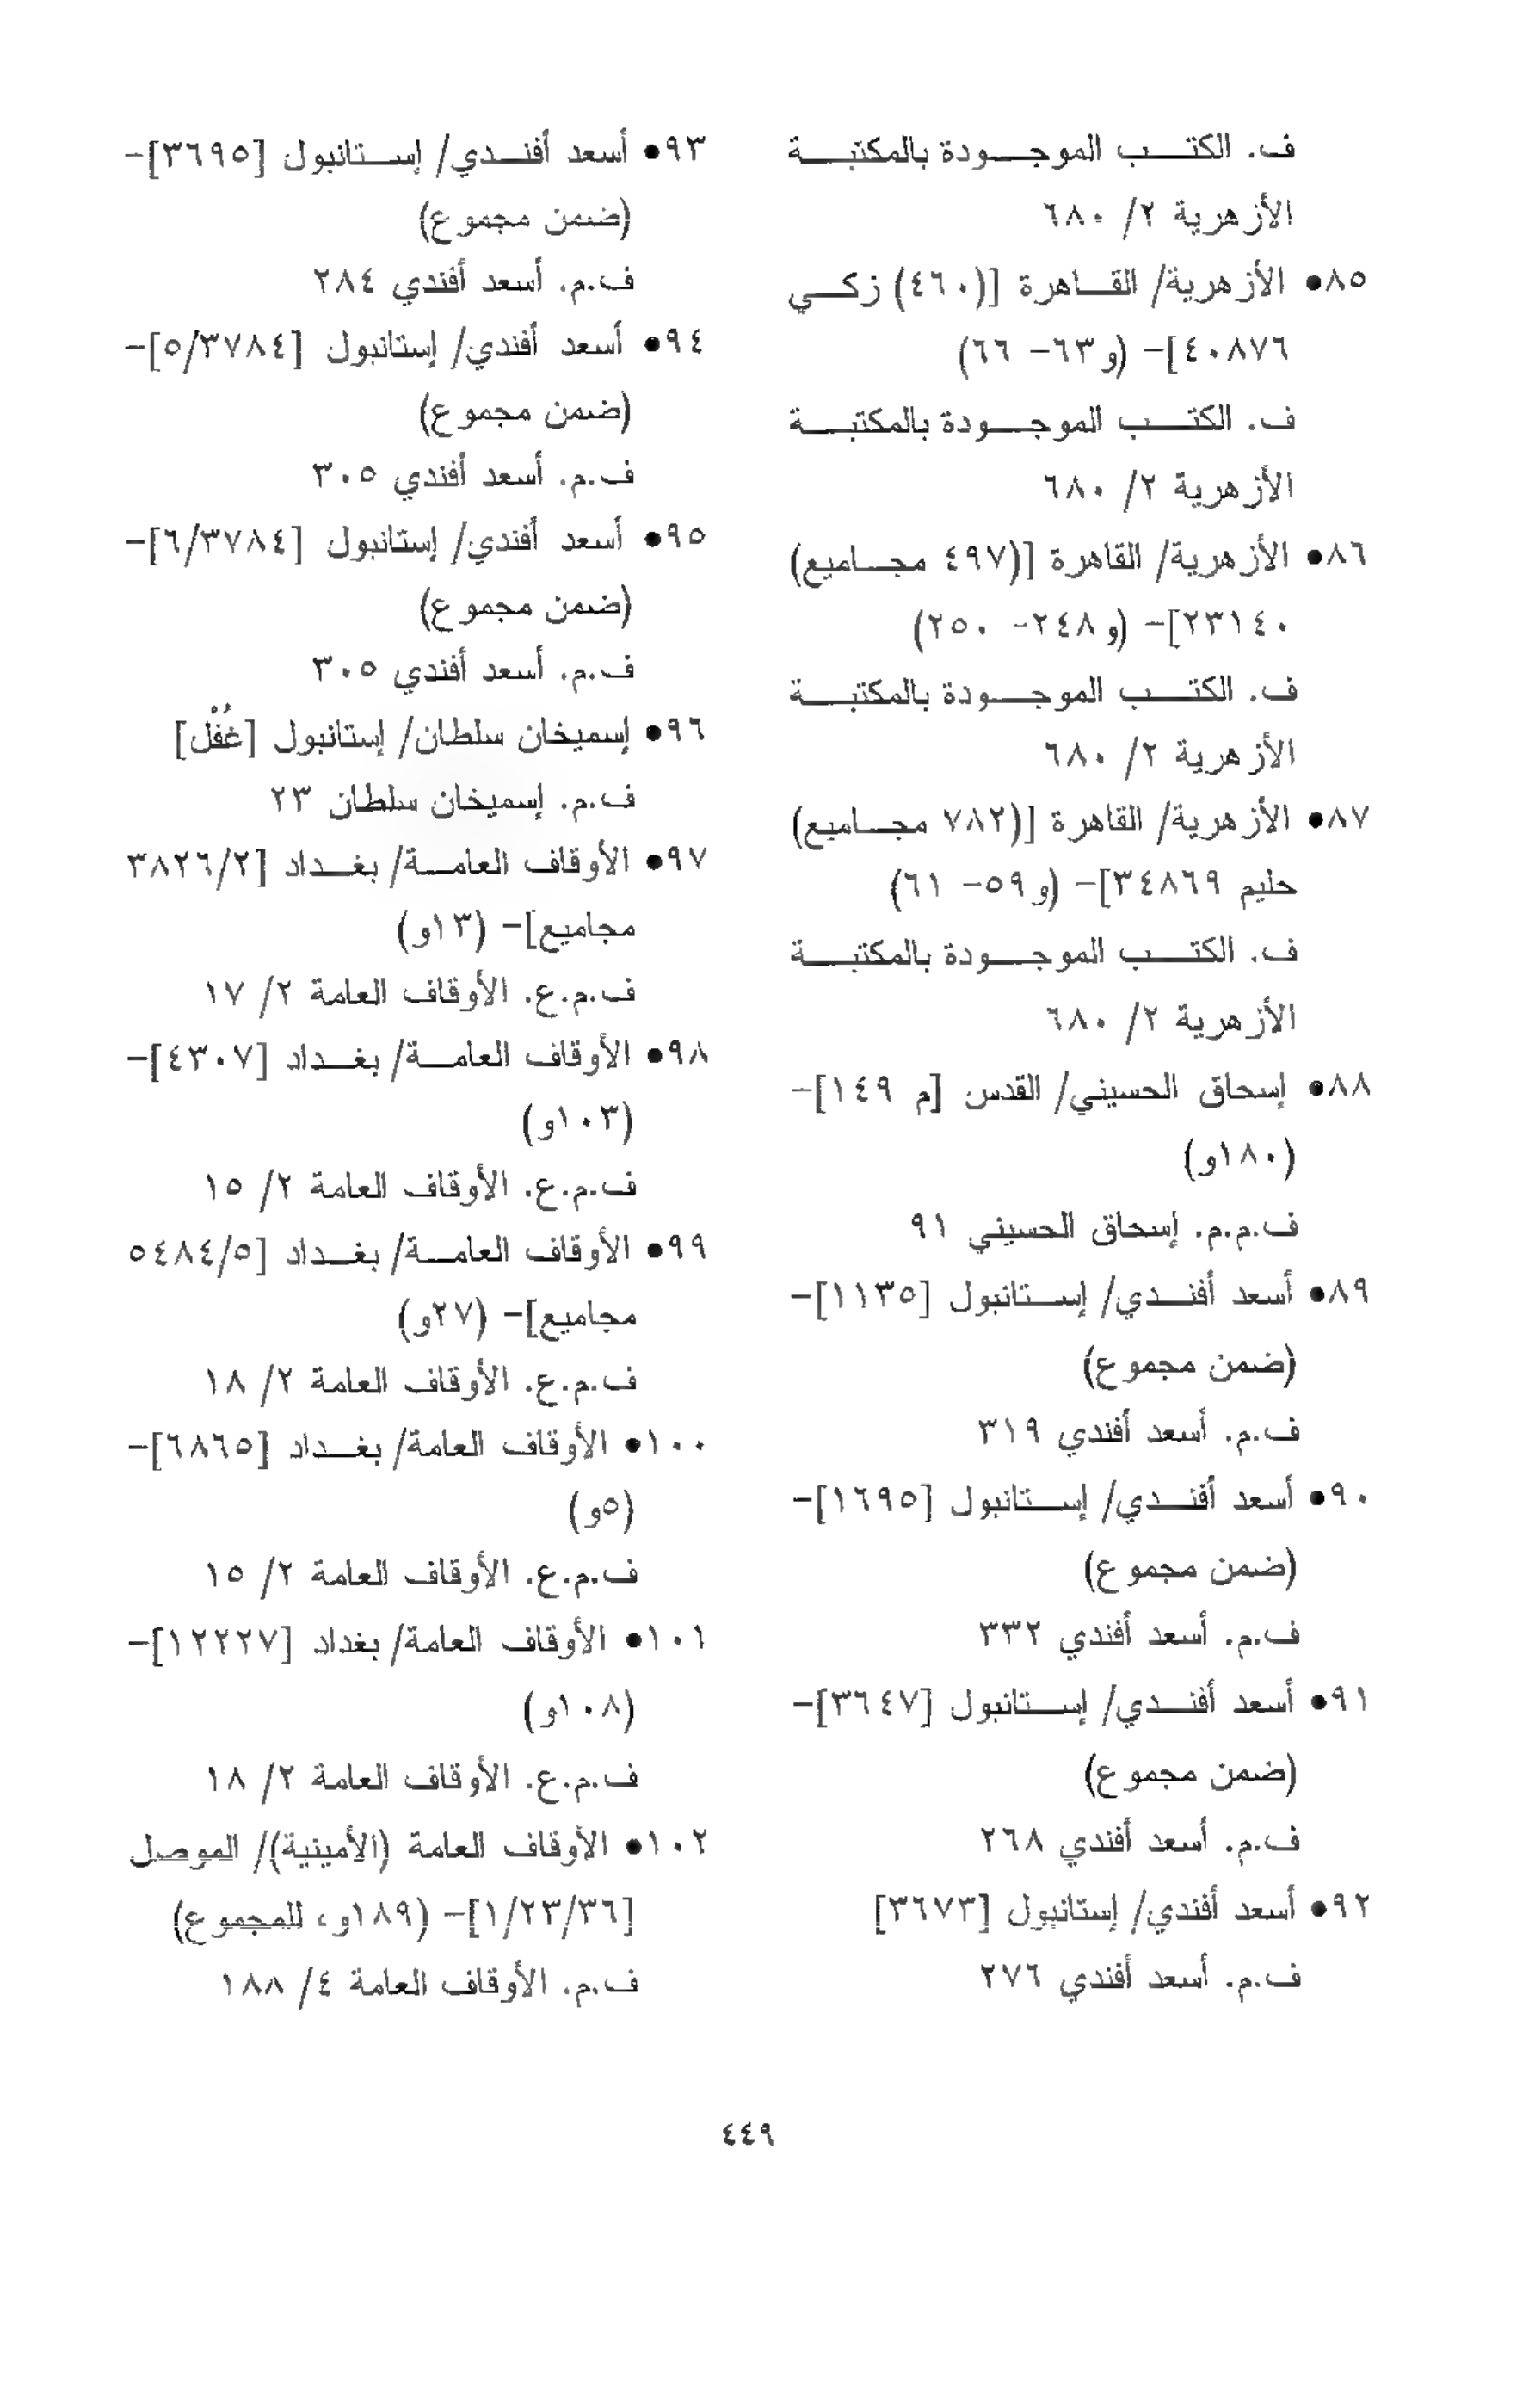 ف. الكتب الموجودة بالمكتبة
الأزهرية ٢/ ٦٨٠
٨٥• الأزهرية/ القاهرة [(٤٦٠) زكي
٤٠٨٧٦]– (و٦٣– ٦٦)
ف. الكتب الموجودة بالمكتبة
الأزهرية ٢/ ٦٨٠
٨٦• الأزهرية/ القاهرة [(٤٩٧ مجاميع)
٢٣١٤٠]– (و٢٤٨– ٢٥٠)
ف. الكتب الموجودة بالمكتبة
الأزهرية ٢/ ٦٨٠
٨٧• الأزهرية/ القاهرة [(٧٨٢ مجاميع)
حليم ٣٤٨٦٩]– (و٥٩– ٦١)
ف. الكتب الموجودة بالمكتبة
الأزهرية ٢/ ٦٨٠
٨٨• إسحاق الحسيني/ القدس [م ١٤٩]–
(١٨٠و)
ف.م.م. إسحاق الحسيني ٩١
٨٩• أسعد أفندي/ إستانبول [١١٣٥]–
(ضمن مجموع)
ف.م. أسعد أفندي ٣١٩
٩٠• أسعد أفندي/ إستانبول [١٦٩٥]–
(ضمن مجموع)
ف.م. أسعد أفندي ٣٣٢
٩١• أسعد أفندي/ إستانبول [٣٦٤٧]–
(ضمن مجموع)
ف.م. أسعد أفندي ٢٦٨
٩٢• أسعد أفندي/ إستانبول [٣٦٧٣]
ف.م. أسعد أفندي ٢٧٦
٩٣• أسعد أفندي/ إستانبول [٣٦٩٥]–
(ضمن مجموع)
ف.م. أسعد أفندي ٢٨٤
٩٤• أسعد أفندي/ إستانبول [٥/٣٧٨٤]–
(ضمن مجموع)
ف.م. أسعد أفندي ٣٠٥
٩٥• أسعد أفندي/ إستانبول [٦/٣٧٨٤]–
(ضمن مجموع)
ف.م. أسعد أفندي ٣٠٥
٩٦• إسميخان سلطان/ إستانبول [غُفْل]
ف.م. إسميخان سلطان ٢٣
٩٧• الأوقاف العامة/ بغداد [٣٨٢٦/٢
مجاميع]– (١٣و)
ف.م.ع. الأوقاف العامة ٢/ ١٧
٩٨• الأوقاف العامة/ بغداد [٤٣٠٧]–
(١٠٣و)
ف.م.ع. الأوقاف العامة ٢/ ١٥
٩٩• الأوقاف العامة/ بغداد [٥٤٨٤/٥
مجاميع]– (٢٧و)
ف.م.ع. الأوقاف العامة ٢/ ١٨
١٠٠• الأوقاف العامة/ بغداد [٦٨٦٥]–
(٥و)
ف.م.ع. الأوقاف العامة ٢/ ١٥
١٠١• الأوقاف العامة/ بغداد [١٢٢٢٧]–
(١٠٨و)
ف.م.ع. الأوقاف العامة ٢/ ١٨
١٠٢• الأوقاف العامة (الأمينية)/ الموصل
[١/٢٣/٣٦]– (١٨٩و، للمجموع)
ف.م. الأوقاف العامة ٤/ ١٨٨
٤٤٩